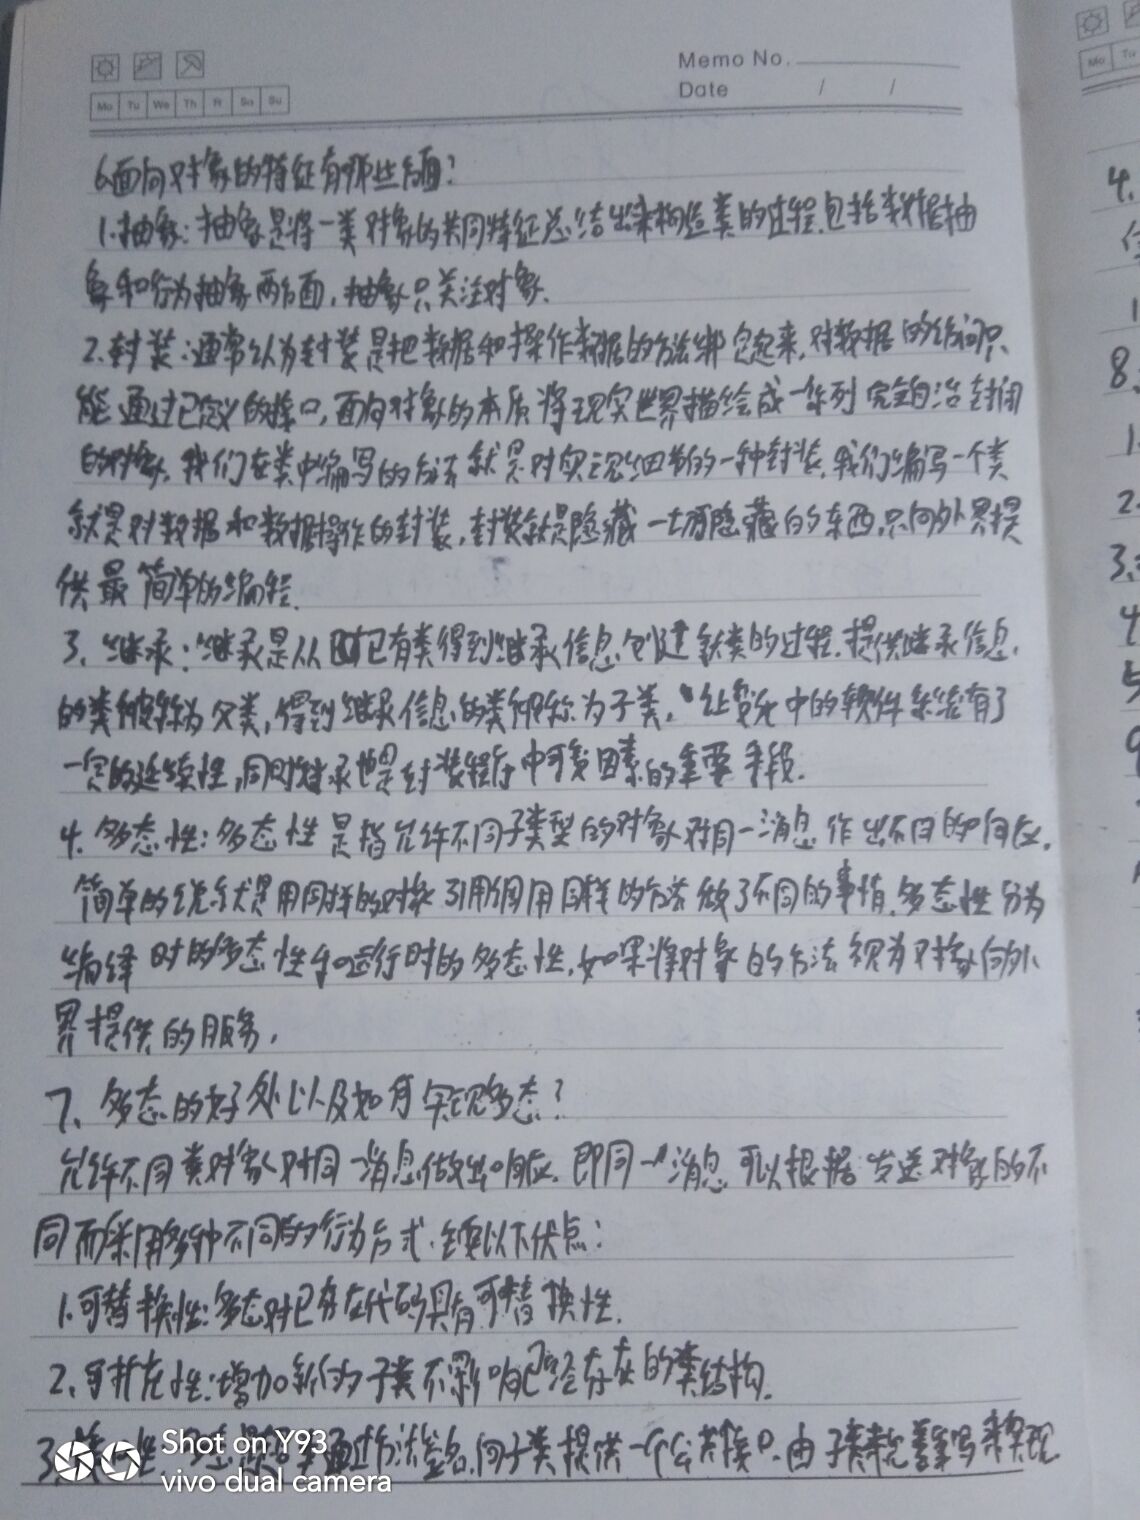 Memo No.
Mo Tu We Th Fr Sa Su
Date / /
6.面向对象的特征有哪些方面?
1.抽象:抽象是将一类对象的共同特征总结出来构造类的过程,包括数据抽
象和行为抽象两方面,抽象只关注对象.
2.封装:通常认为封装是把数据和操作数据的方法绑定起来,对数据的访问只
能通过已定义的接口,面向对象的本质将现实世界描绘成一系列完全自治封闭
的对象,我们在类中编写的方法就是对实现细节的一种封装,我们编写一个类
就是对数据和数据操作的封装,封装就是隐藏一切可隐藏的东西,只向外界提
供最简单的编程.
3.继承:继承是从已有类得到继承信息创建新类的过程.提供继承信息
的类被称为父类,得到继承信息的类被称为子类,让变化中的软件系统有了
一定的延续性,同时继承也是封装程序中可变因素的重要手段.
4.多态性:多态性是指允许不同子类型的对象对同一消息作出不同的响应,
简单的说就是用同样的对象引用调用同样的方法做了不同的事情,多态性分为
编译时的多态性和运行时的多态性,如果将对象的方法视为对象向外
界提供的服务,
7、多态的好处以及如何实现多态?
允许不同类对象对同一消息做出响应,即同一消息可以根据发送对象的不
同而采用多种不同的行为方式.主要以下优点:
1.可替换性:多态对已存在代码具有可替换性.
2.可扩充性:增加新的子类不影响已经存在的类结构.
3. 通过方法签名,向子类提供一个公共接口,由子类来完善重写来实现
Shot on Y93
vivo dual camera
Mo Tu
4.
1
8
1
2
3.
4
5